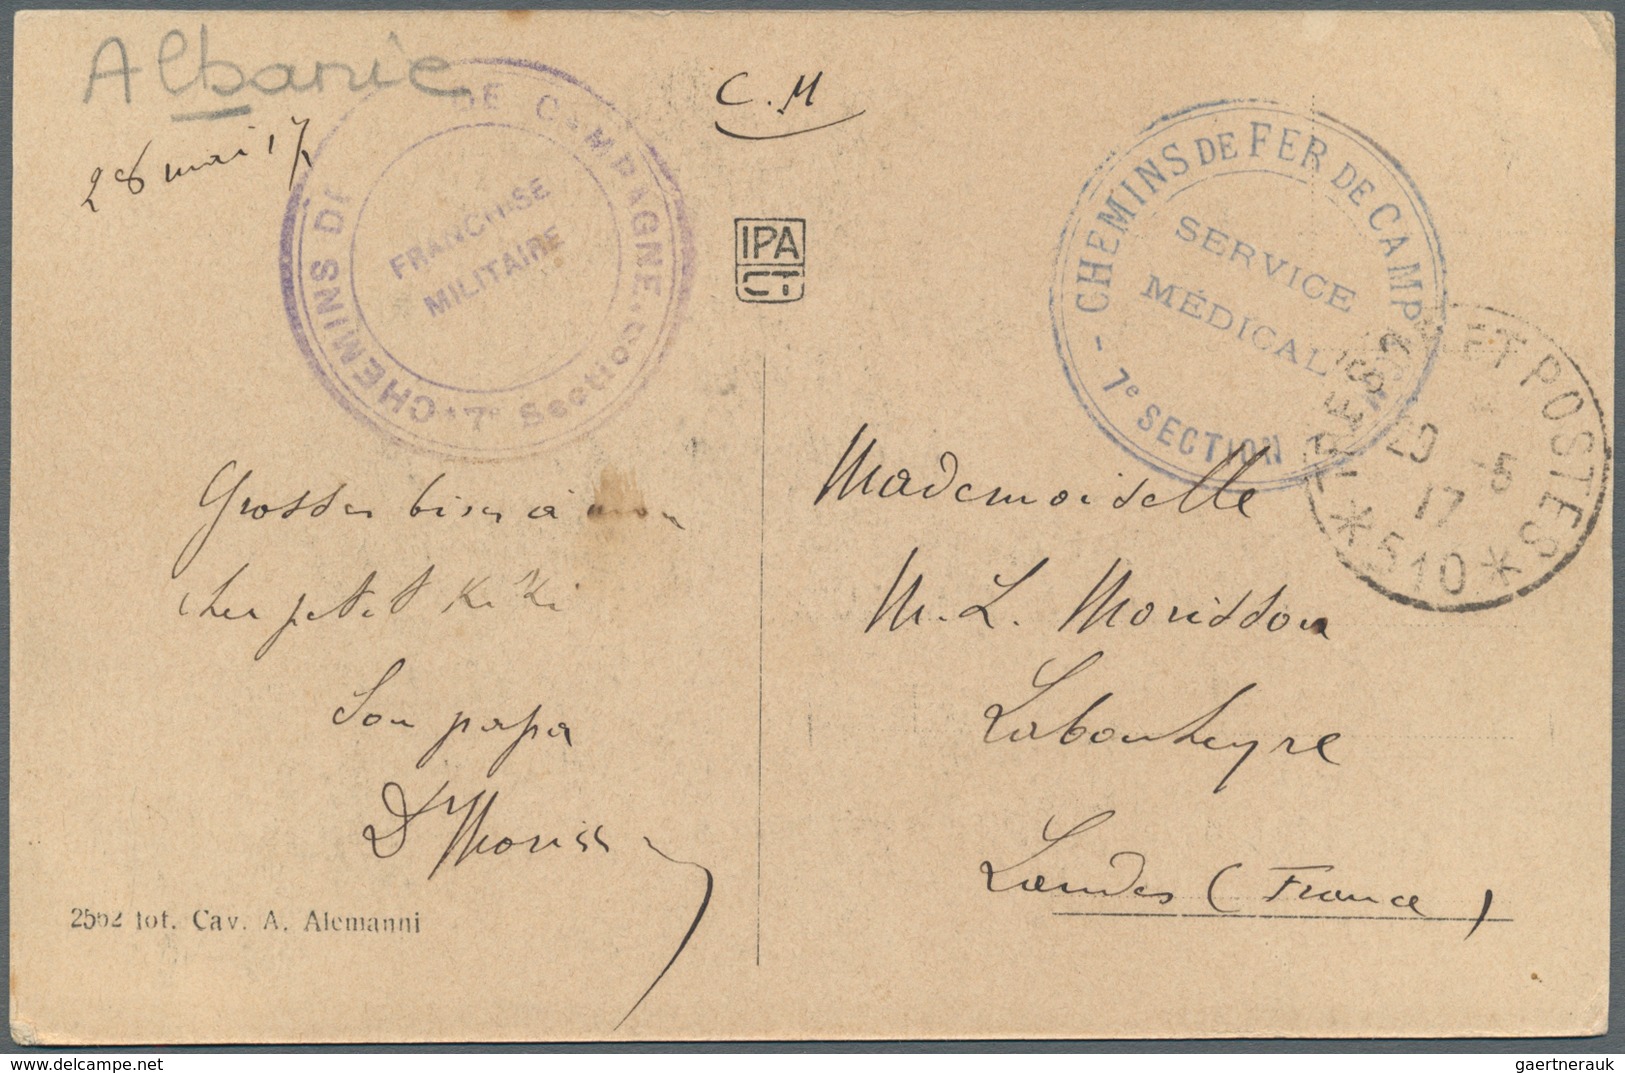 Albanie
28 mai 17
C.M
CHEMINS DE DE CAMPAGNE
7e Section
FRANCHISE
MILITAIRE
IPA
CT
- CHEMINS DE FER DE CAMP
7e SECTION
SERVICE
MÉDICAL
TRESOR ET POSTES
29 -5
17
* 510 *
Grosses bises à mon
cher petit Ki Ki
Son papa
Dr Morisson
Mademoiselle
M. L. Morisson
Labouheyre
Landes (France)
2562 fot. Cav. A. Alemanni
delcampe.net
gaertnerauk